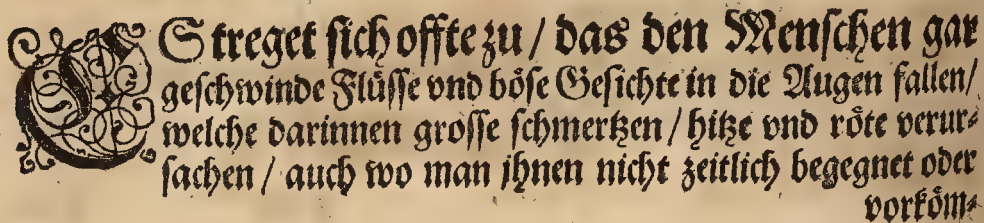 ES treget sich offte zu / das den Menschen gar
geschwinde Flüsse vnd böse Gesichte in die Augen fallen/
welche darinnen grosse schmertzen / hitze vnd röte verur⸗
sachen / auch wo man ihnen nicht zeitlich begegnet oder
vorköm⸗